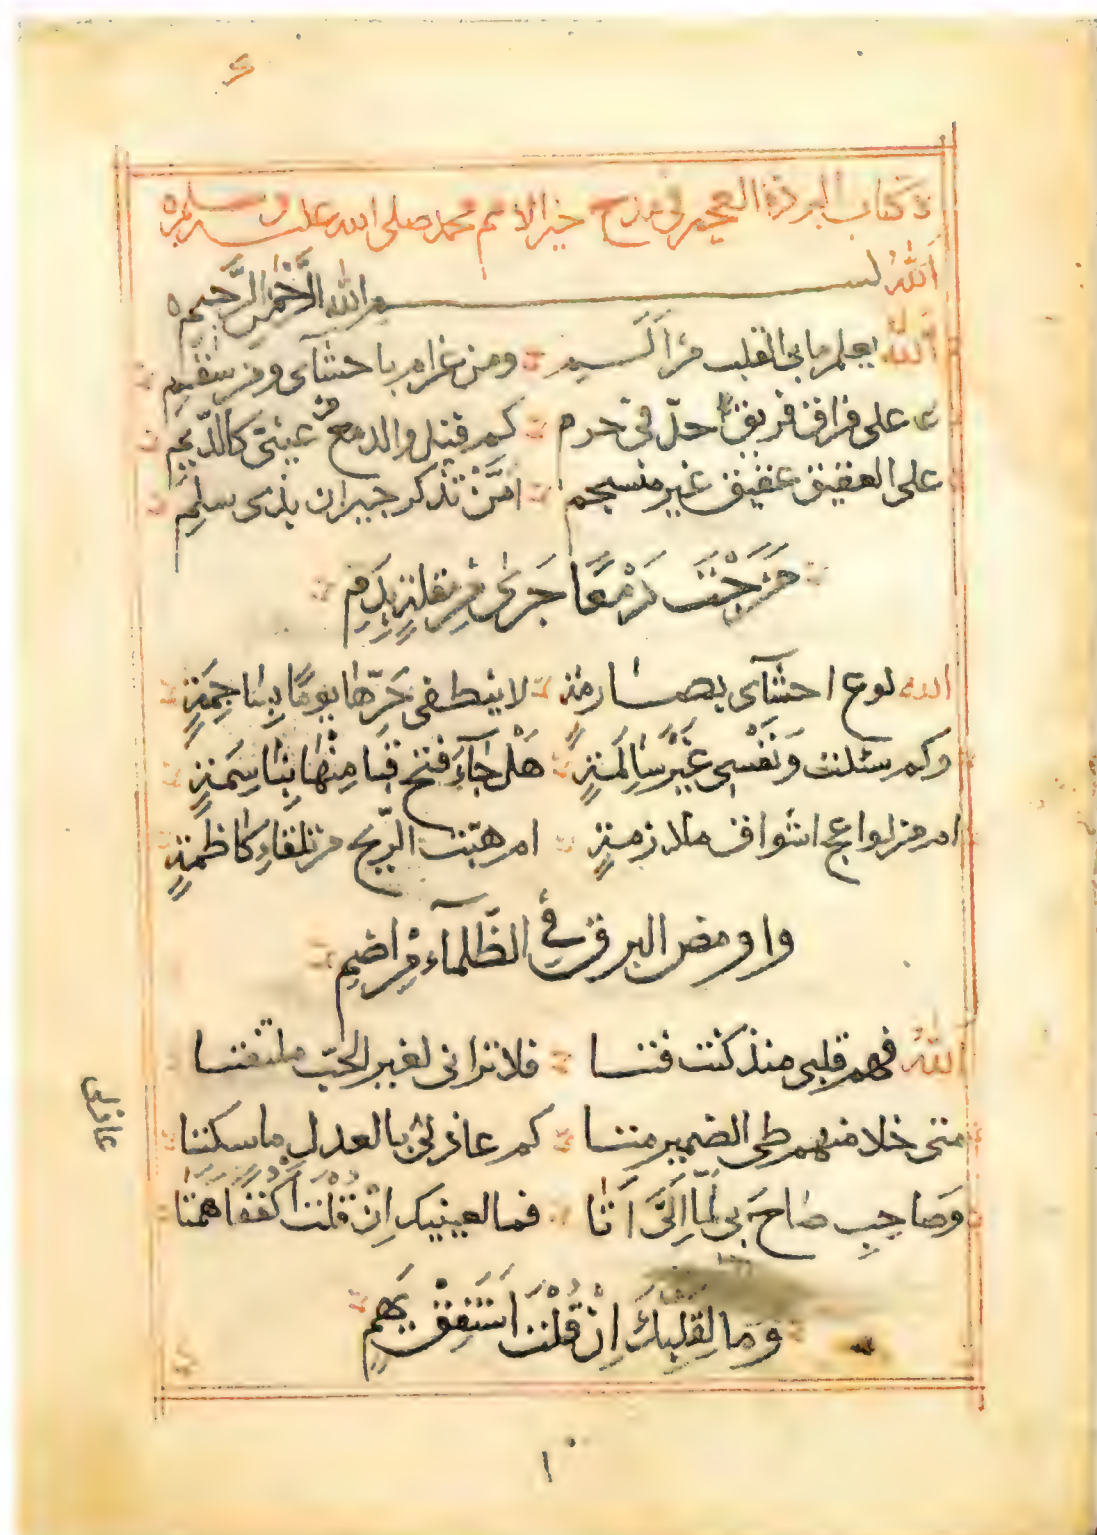 كتاب البردة العجم في مدح خير الامم محمد صلى الله عليه وسلم
الله بسم الله الرَّحْمٰنِ الرَّحيمِ
الله يعلم ما بى القلب من اَلَــم ومن غرام باحشآى ومن سَقَمِ
على فراق فريق حلّ فى حرم كم قتيل والدمع من عينى كالدّيم
على العقيق عقيق غير منسجم امِنْ تذكر جيران بذى سلمِ
مَزَجْتَ دَمْعًا جَرٰى مِن مقلةٍ بِدَمِ
الله لوع احشآى بصارمة لا ينطفى حَرّها يومًا بِنا جِمَةٍ
وكم سئلت وَنَفْسى غَيْرُ سَالِمَةٍ هَلْ جَآءَ فتح قبا مِنْهَا بِنَاسِمَةٍ
ام من لواعج اشواق ملازمةٍ ام هبّت الرّيح من تلقاءِ كاظمةٍ
واومض البرق فِى الظّلمآء مِن اِضمِ
اللهُ فهم قلبى منذ كنت فتــا فلا ترانى لغير الحبّ ملتفتــا
متى خلا منهم طى الضمير متــا كم عاذلى بالعدل ما سكتا
وَصَاحِبِ صَاحَ بى لَمّا اِلَىَّ اَتٰا فما لعينيك اِنْ قُلْتَ اكْفُفَا هَمَتَا
وَمَا لِقَلْبِكَ اِنْ قُلْتَ اسْتَفِقْ يَهِمِ
١